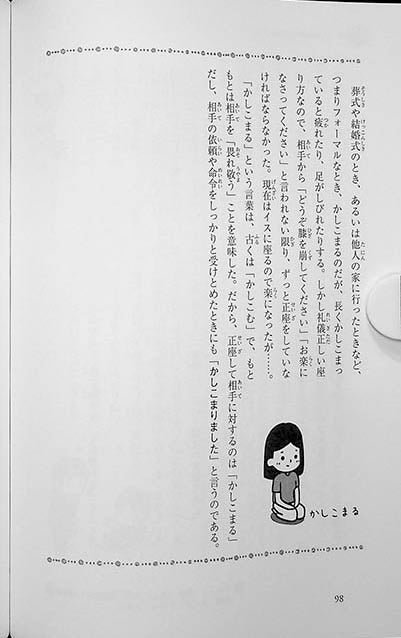 葬式や結婚式のとき、あるいは他人の家に行ったときなど、
つまりフォーマルなとき、かしこまるのだが、長くかしこまっ
ていると疲れたり、足がしびれたりする。しかし礼儀正しい座
り方なので、相手から「どうぞ膝を崩してください」「お楽に
なさってください」と言われない限り、ずっと正座をしていな
ければならなかった。現在はイスに座るので楽になったが……。
「かしこまる」という言葉は、古くは「かしこむ」で、もと
もとは相手を「畏れ敬う」ことを意味した。だから、正座して相手に対するのは「かしこまる」
だし、相手の依頼や命令をしっかりと受けとめたときにも「かしこまりました」と言うのである。
かしこまる
98